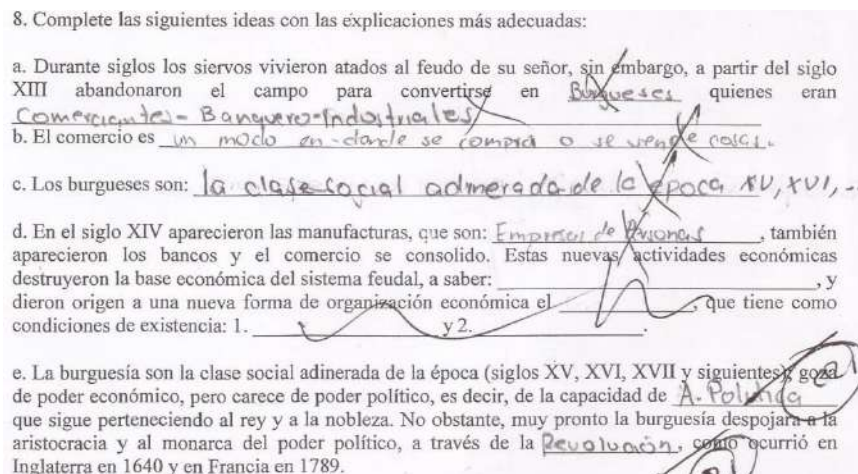 8. Complete las siguientes ideas con las explicaciones más adecuadas:
a. Durante siglos los siervos vivieron atados al feudo de su señor, sin embargo, a partir del siglo
XIII abandonaron el campo para convertirse en Burgueses quienes eran
Comerciantes - Banquero - Industriales
b. El comercio es un modo en donde se compra o se vende cosas.
c. Los burgueses son: la clase social adinerada de la época XV, XVI, -
d. En el siglo XIV aparecieron las manufacturas, que son: Empresas de Personas, también
aparecieron los bancos y el comercio se consolido. Estas nuevas actividades económicas
destruyeron la base económica del sistema feudal, a saber: , y
dieron origen a una nueva forma de organización económica el , que tiene como
condiciones de existencia: 1. y 2. .
e. La burguesía son la clase social adinerada de la época (siglos XV, XVI, XVII y siguientes), goza
de poder económico, pero carece de poder político, es decir, de la capacidad de A. Politica
que sigue perteneciendo al rey y a la nobleza. No obstante, muy pronto la burguesía despojara a la
aristocracia y al monarca del poder político, a través de la Revolución, como ocurrió en
Inglaterra en 1640 y en Francia en 1789.